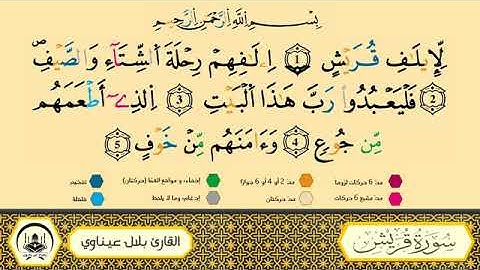 بِسْمِ ٱللَّهِ ٱلرَّحْمَٰنِ ٱلرَّحِيمِ
لِّإِيلَٰفِ قُرَيْشٍ 1 إِۦلَٰفِهِمْ رِحْلَةَ ٱلشِّتَآءِ وَٱلصَّيْفِۖ
2 فَلْيَعْبُدُواْ رَبَّ هَٰذَا ٱلْبَيْتِ 3 ٱلذِےٓ أَطْعَمَهُم
مِّن جُوعٍ 4 وَءَامَنَهُم مِّنْ خَوْفٍ 5
مد 6 حركات لزوما مد 2 أو 4 أو 6 جوازا إخفاء، و مواقع الغنة (حركتان) تفخيم
مد مشبع 6 حركات مد حركتان إدغام، وما لا يلفظ قلقلة
سورة قريش القارئ بلال عيناوي